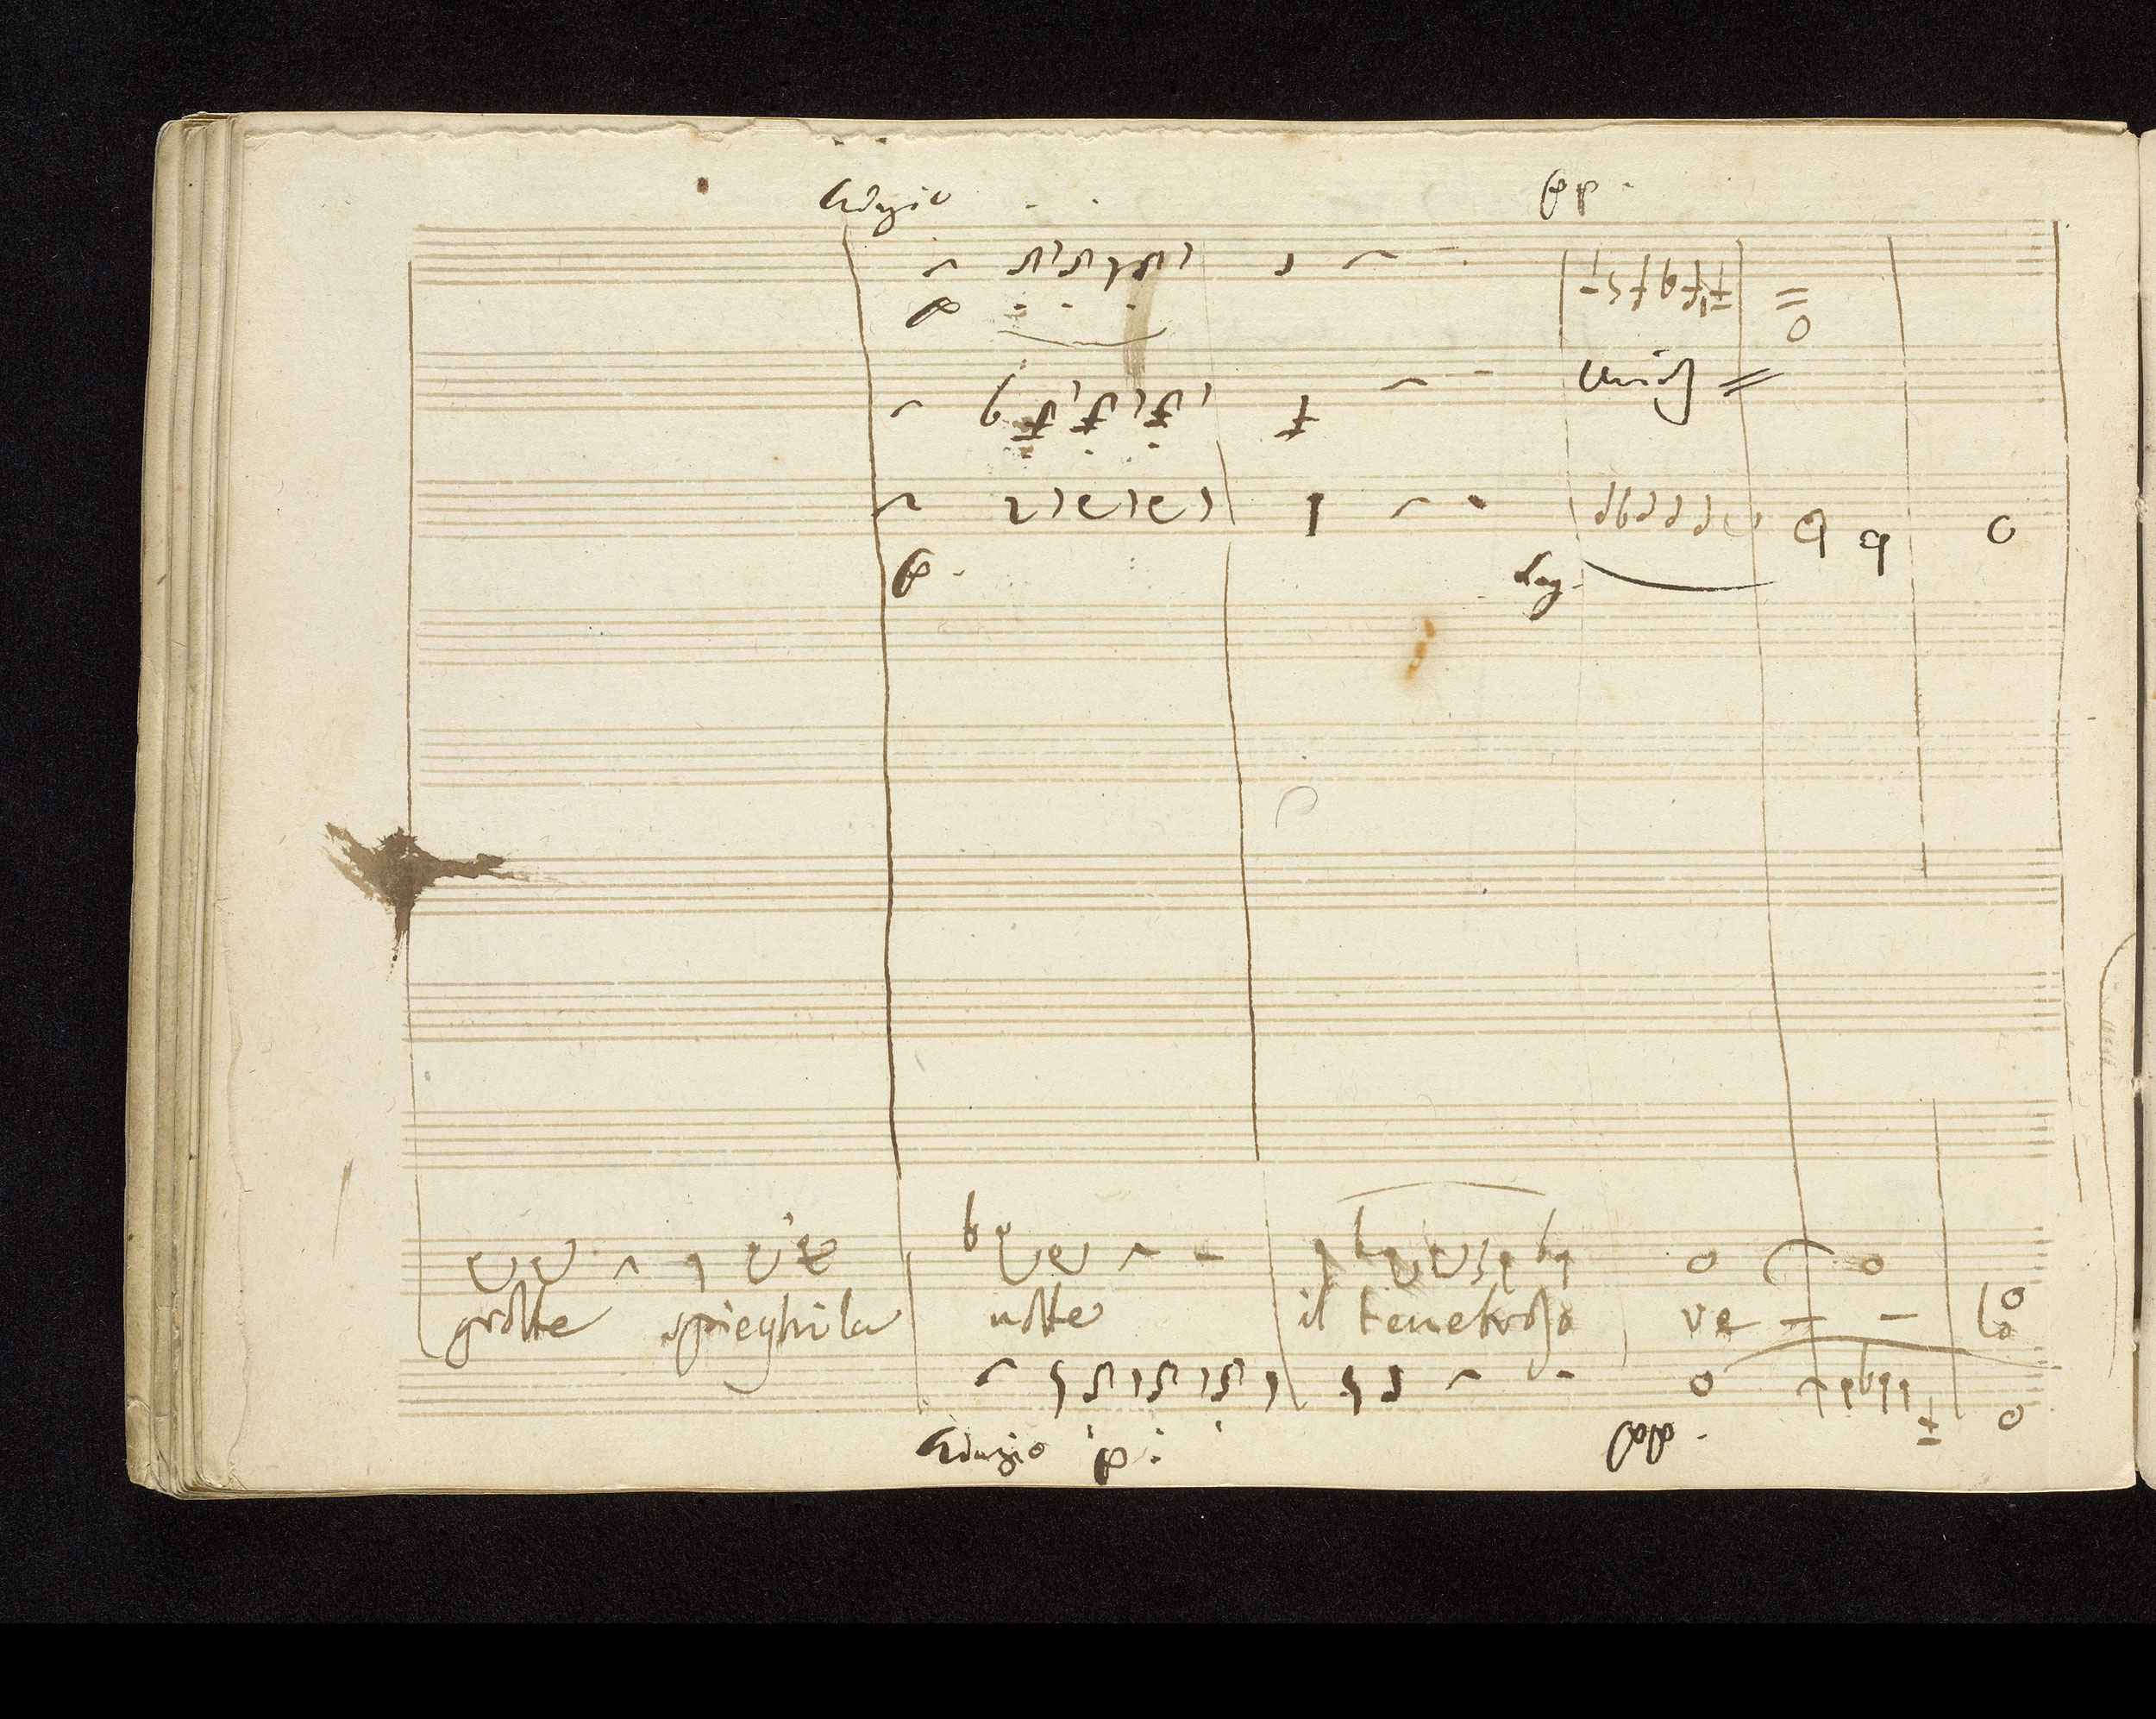 Adagio pp.
p
unis
p. leg.
grotte spieghi la notte il tenebroso ve - - lo
Adagio p: pp.